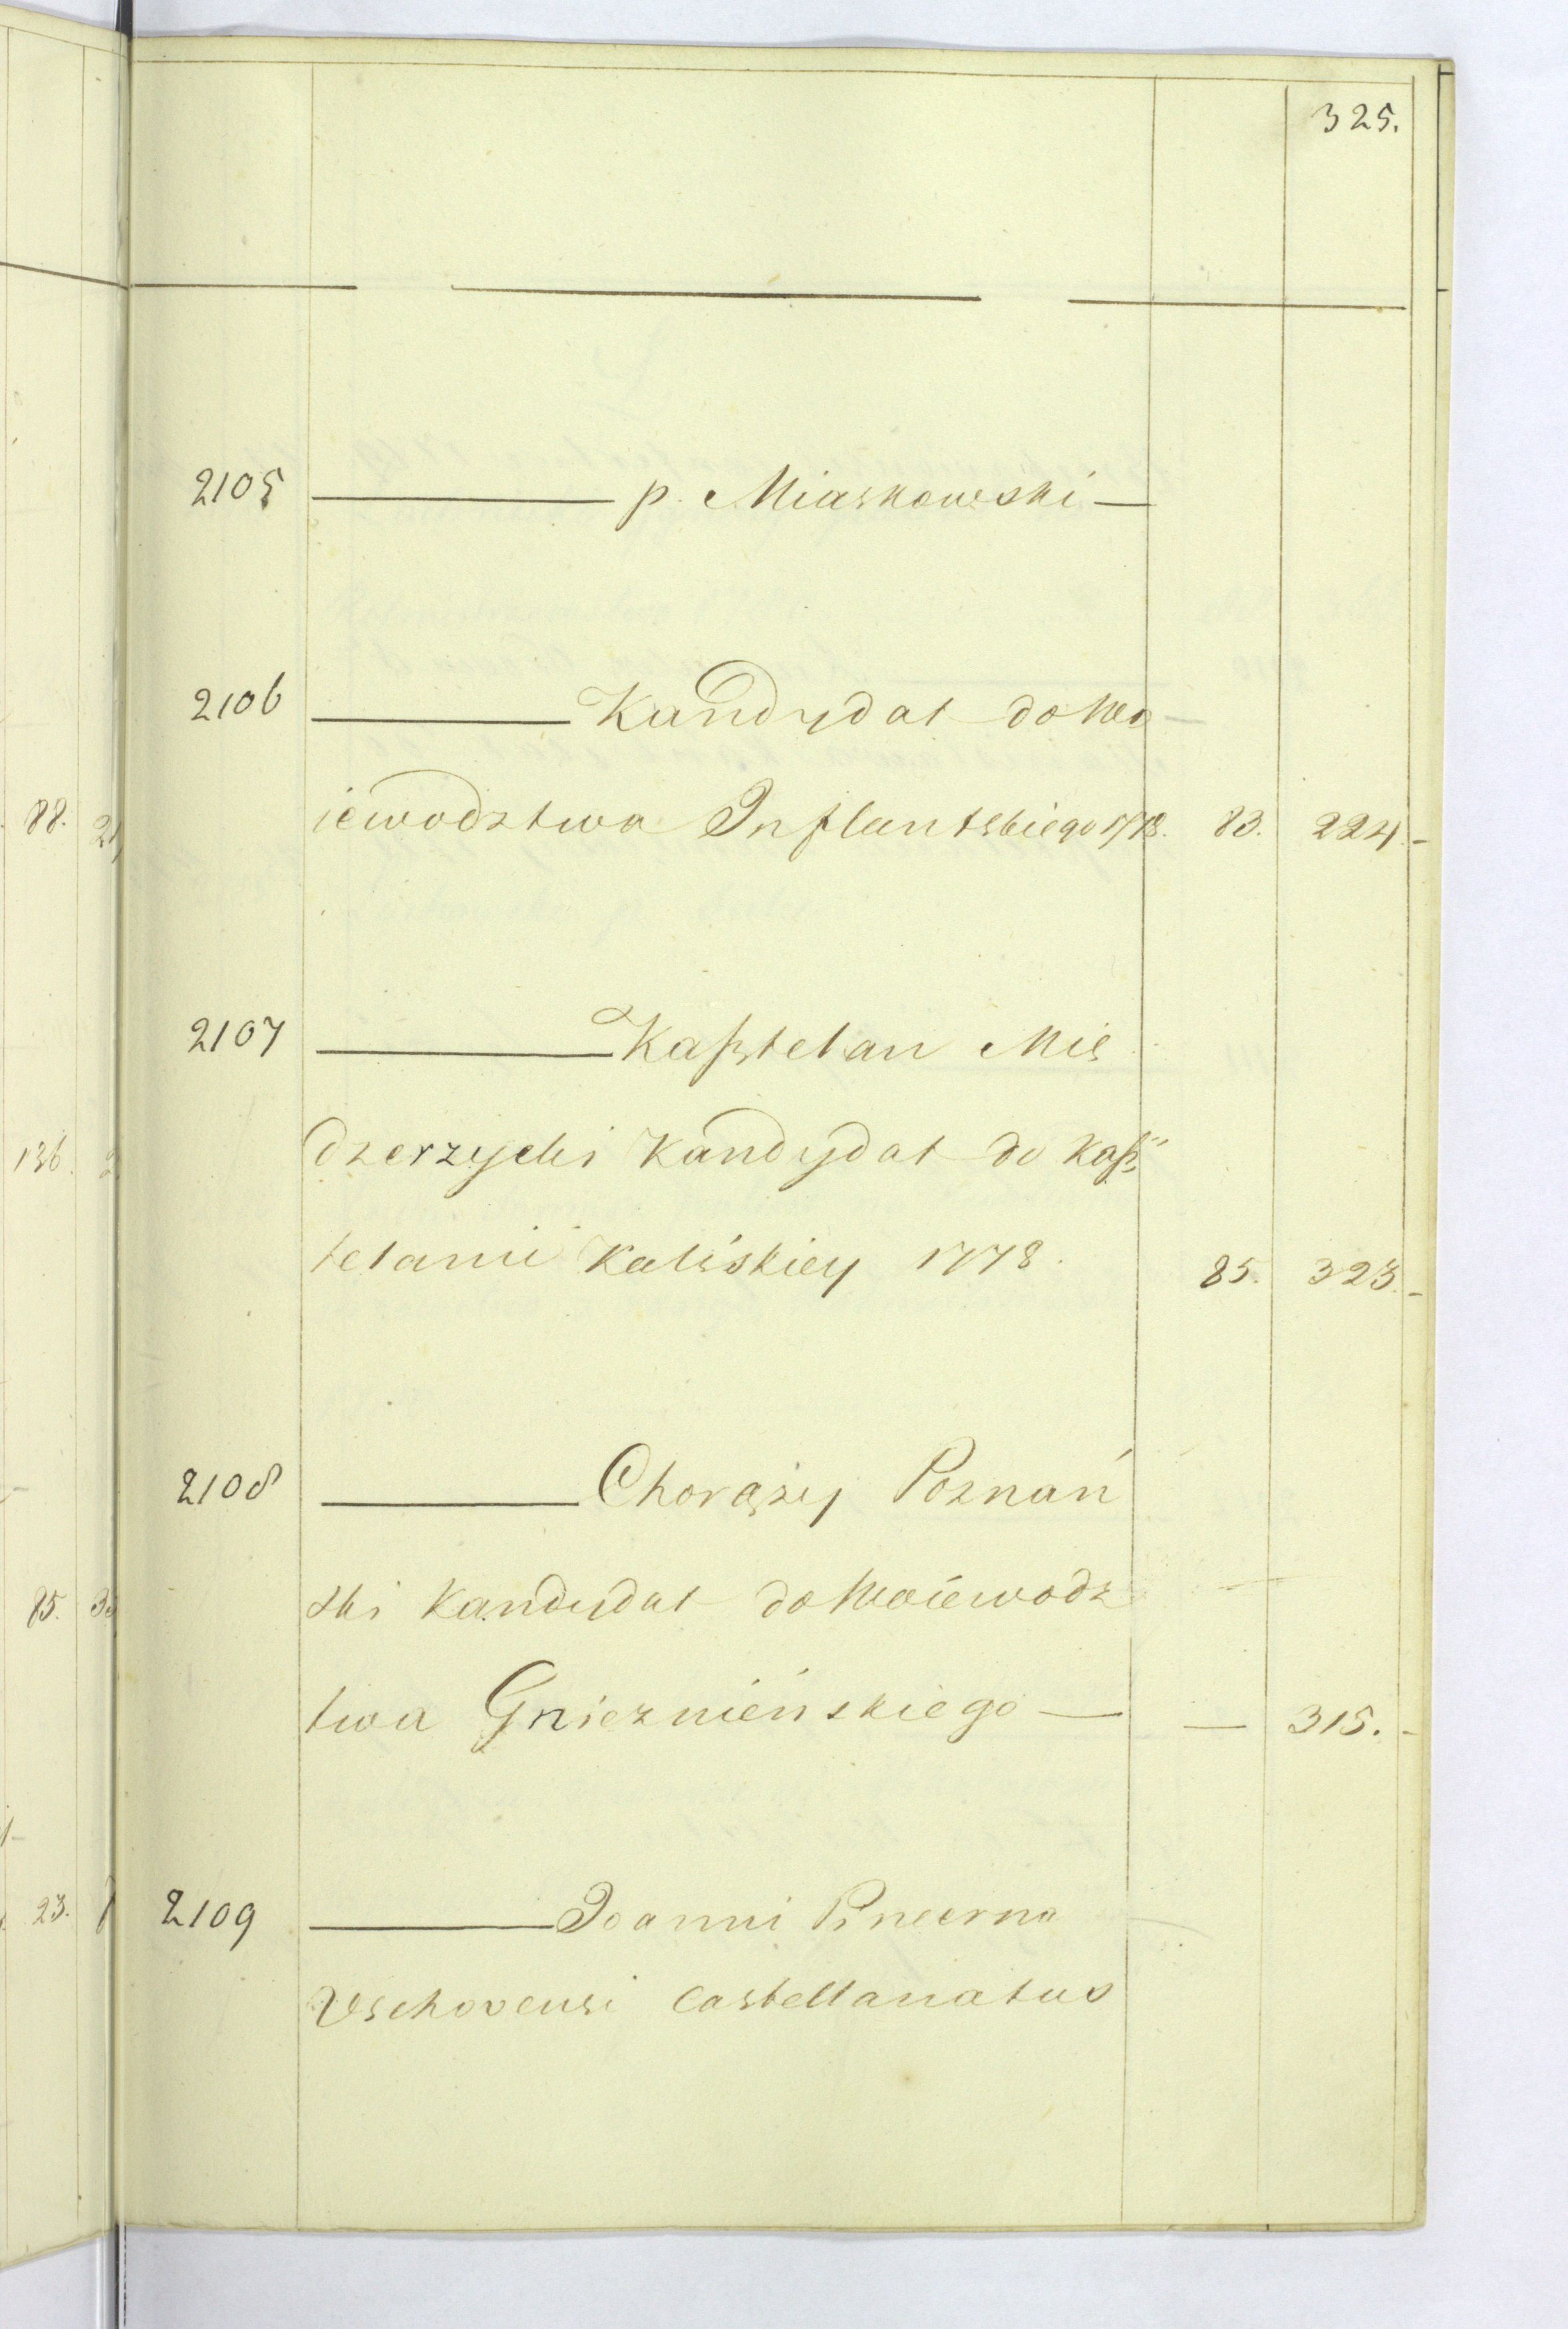 325.
2105 ——— p. Miaskowski —
2106 ——— Kandydat do Wo
iewodztwa Inflantskiego 1778. 83. 224.-
2107 ——— Kasztelan Mię
dzerzycki Kandydat do Kasz„
telanii Kaliskiey 1778. 85. 323.-
2108 ——— Chorąży Poznań
ski Kandydat do Woiewodz
twa Gnieznieńskiego — — 315.-
2109 ——— Joanni Pincerna
Vschovensi Castellanatus
88.
136.
85.
23.